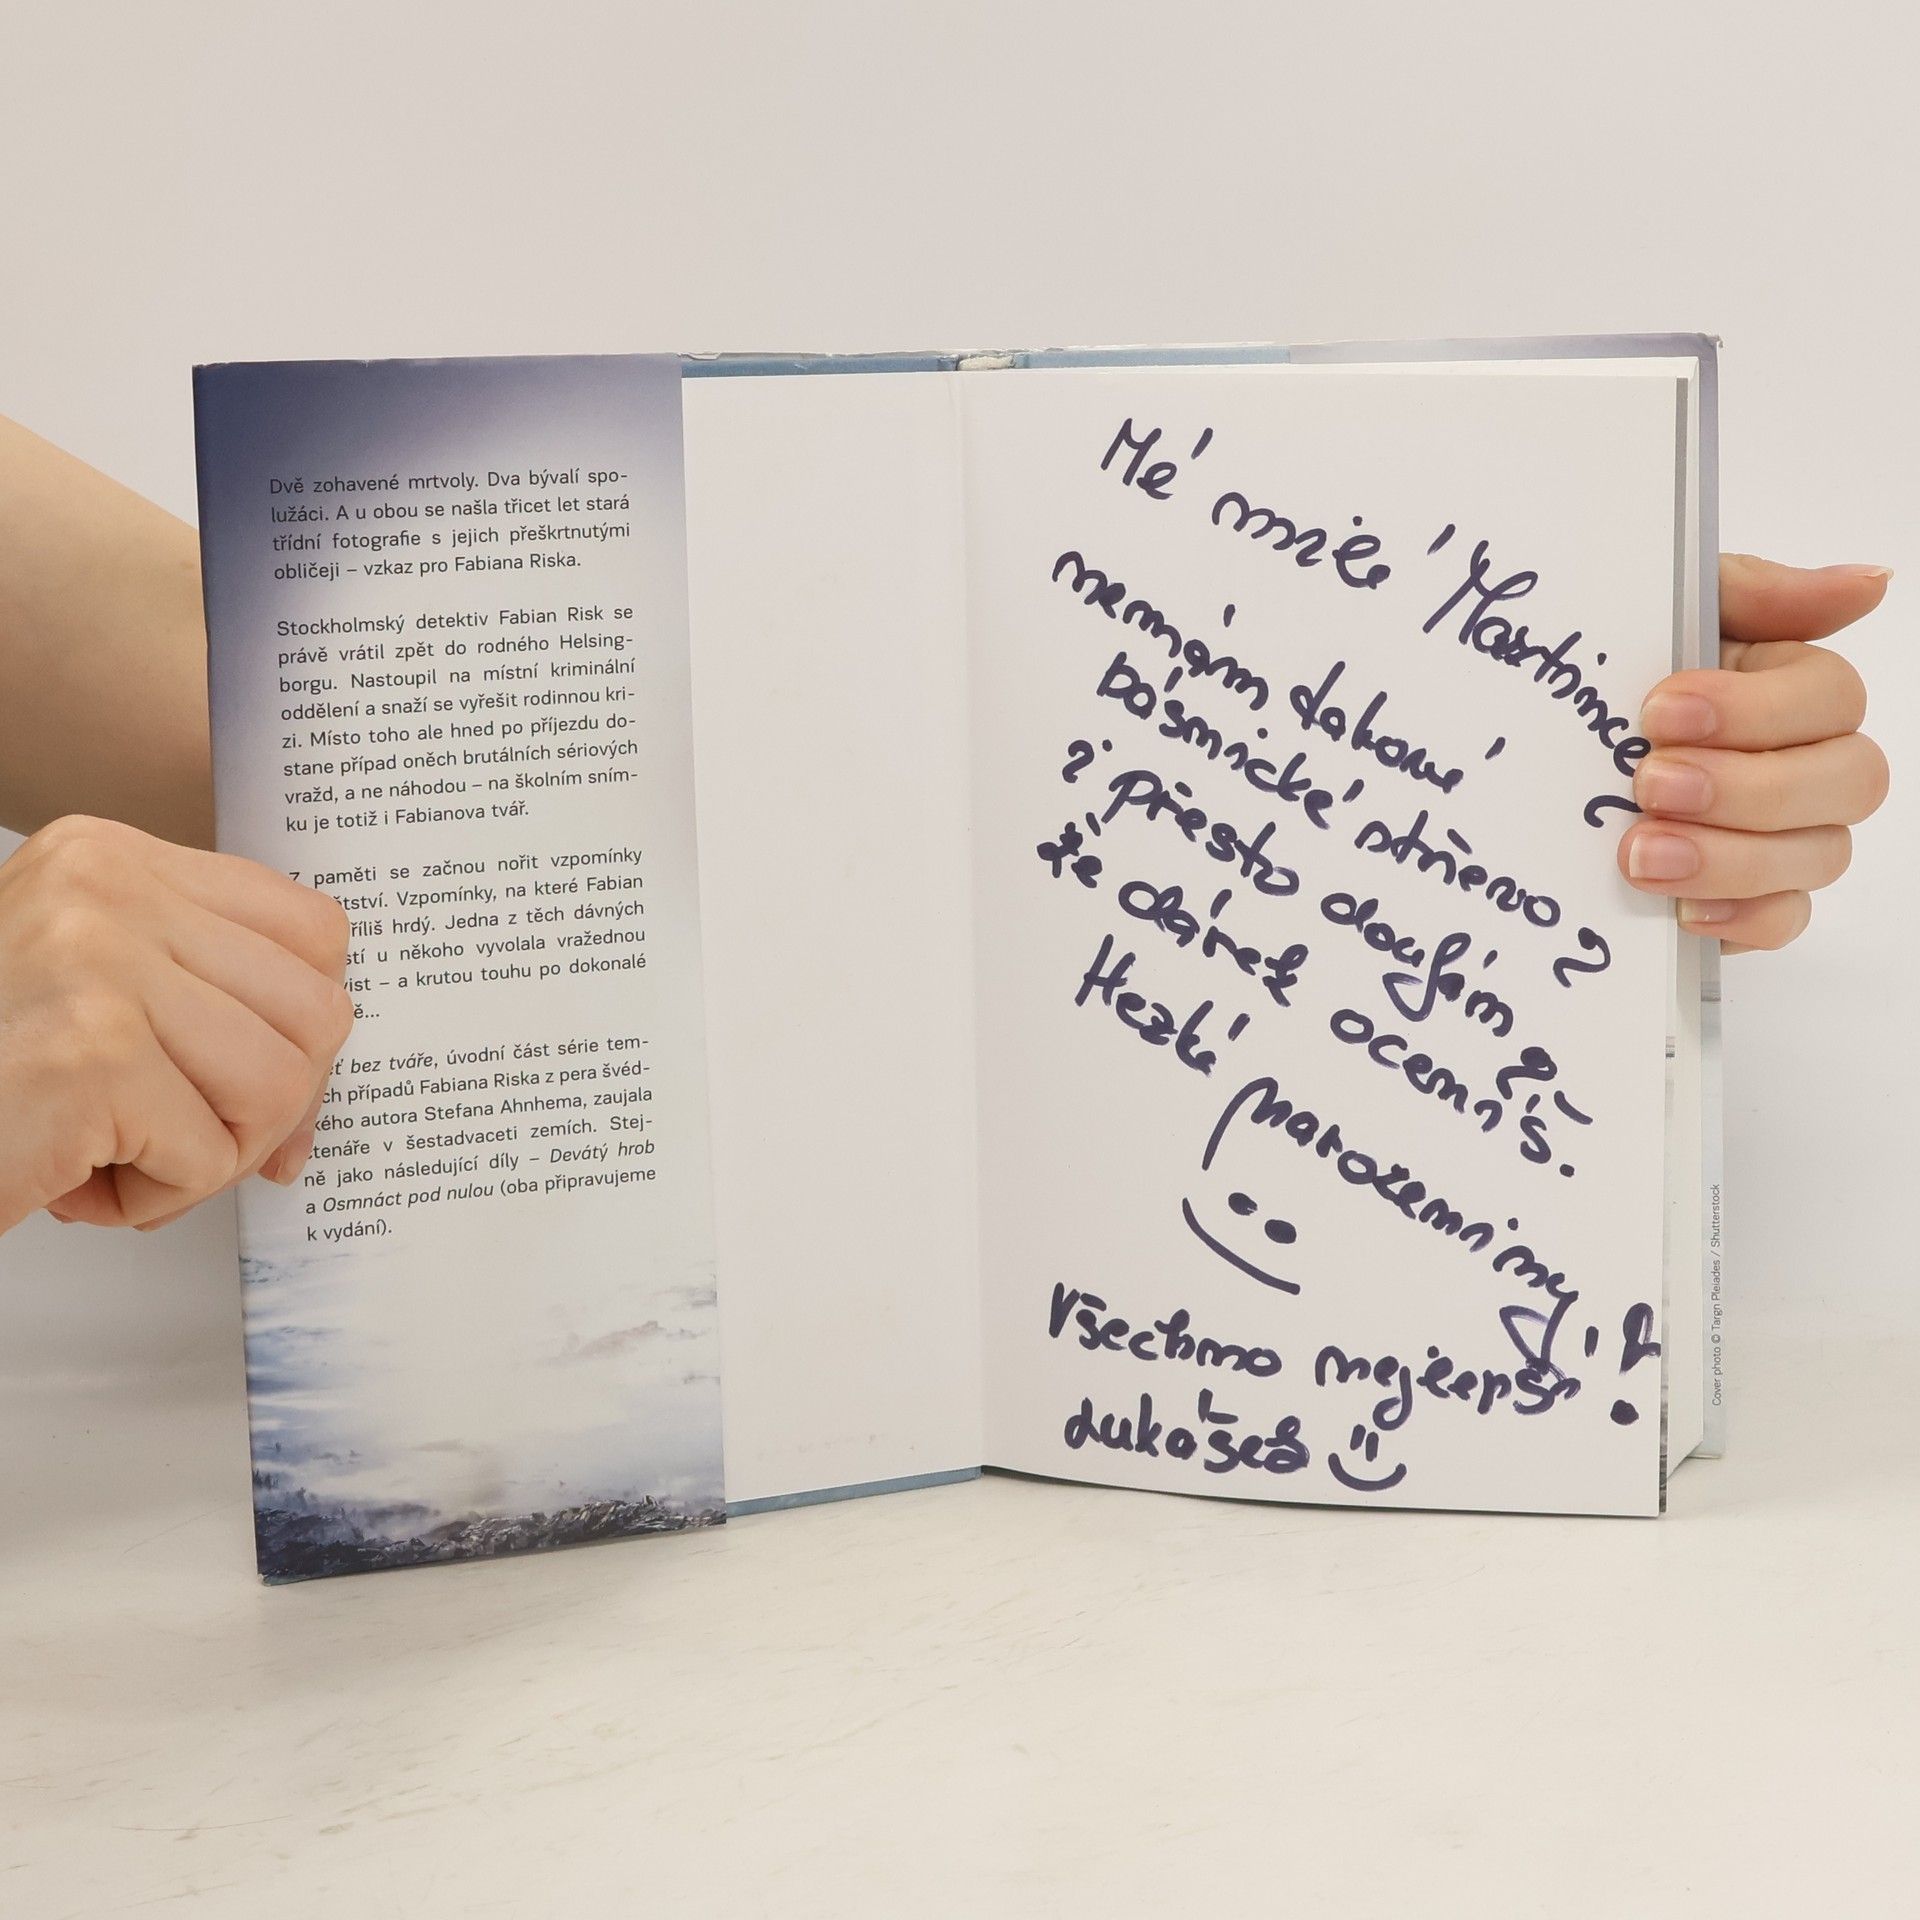 Dvě zohavené mrtvoly. Dva bývalí spo-
lužáci. A u obou se našla třicet let stará
třídní fotografie s jejich přeškrtnutými
obličeji – vzkaz pro Fabiana Riska.
Stockholmský detektiv Fabian Risk se
právě vrátil zpět do rodného Helsing-
borgu. Nastoupil na místní kriminální
oddělení a snaží se vyřešit rodinnou kri-
zi. Místo toho ale hned po příjezdu do-
stane případ oněch brutálních sériových
vražd, a ne náhodou – na školním sním-
ku je totiž i Fabianova tvář.
Z paměti se začnou nořit vzpomínky
tství. Vzpomínky, na které Fabian
říliš hrdý. Jedna z těch dávných
stí u někoho vyvolala vražednou
vist – a krutou touhu po dokonalé
ě...
ť bez tváře, úvodní část série tem-
ch případů Fabiana Riska z pera švéd-
kého autora Stefana Ahnhema, zaujala
čtenáře v šestadvaceti zemích. Stej-
ně jako následující díly – Devátý hrob
a Osmnáct pod nulou (oba připravujeme
k vydání).
Mé milé Martince,
nemám takové
básnické střevo,
i přesto doufám,
že dárek oceníš.
Hezké narozeniny!
Všechno nejlepší
Lukášek
Cover photo © Targn Pleiades / Shutterstock